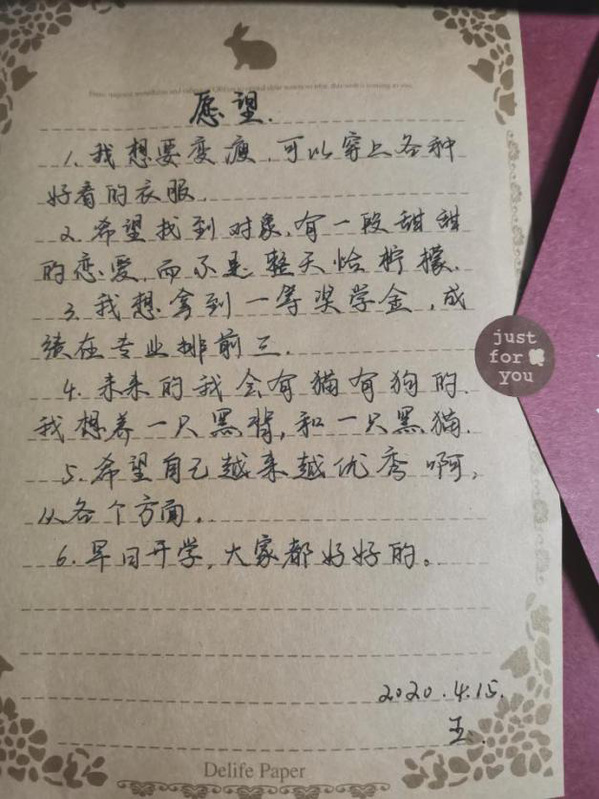 愿望.
1.我想要变瘦,可以穿上各种
好看的衣服.
2.希望找到对象,有一段甜甜
的恋爱,而不是整天恰柠檬.
3.我想拿到一等奖学金,成
绩在专业排前三.
4.未来的我会有猫有狗的.
我想养一只黑背,和一只黑猫.
5.希望自己越来越优秀啊,
从各个方面。
6.早日开学,大家都好好的。
2020.4.15.
王.
Delife Paper
just
for
you